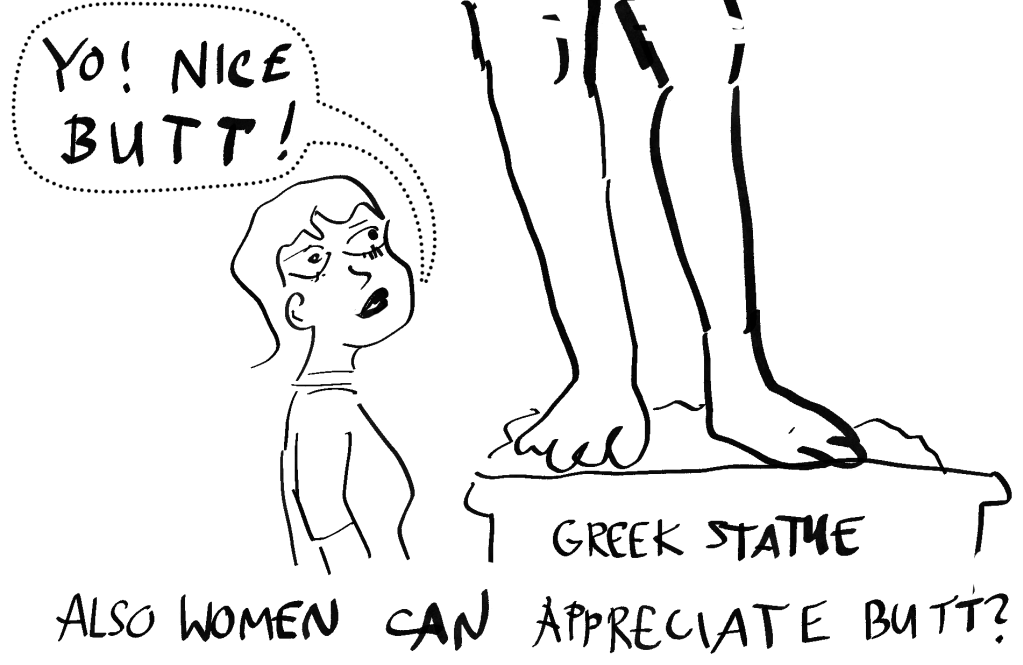 YO! NICE
BUTT!
GREEK STATUE
ALSO WOMEN CAN APPRECIATE BUTT?